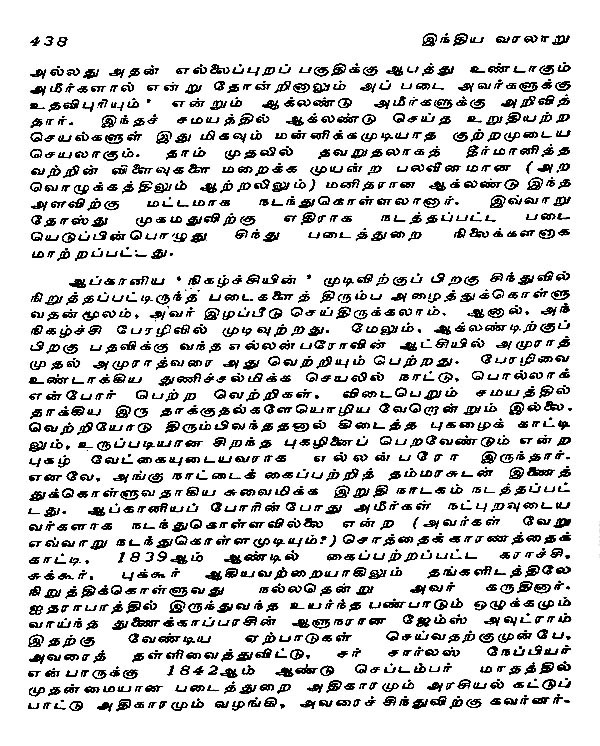 438 இந்திய வரலாறு
அல்லது அதன் எல்லைப்புறப் பகுதிக்கு ஆபத்து உண்டாகும்
அமீர்களால் என்று தோன்றினாலும் அப் படை அவர்களுக்கு
உதவிபுரியும்' என்றும் ஆக்லண்டு அமீர்களுக்கு அறிவித்
தார். இந்தச் சமயத்தில் ஆக்லண்டு செய்த உறுதியற்ற
செயல்களுள் இது மிகவும் மன்னிக்கமுடியாத குற்றமுடைய
செயலாகும். தாம் முதலில் தவறுதலாகத் தீர்மானித்த
வற்றின் விளைவுகளை மறைக்க முயன்ற பலவீனமான (அற
வொழுக்கத்திலும் ஆற்றலிலும்) மனிதரான ஆக்லண்டு இந்த
அளவிற்கு மட்டமாக நடந்துகொள்ளலானார். இவ்வாறு
தோஸ்து முகமதுவிற்கு எதிராக நடத்தப்பட்ட படை
யெடுப்பின்பொழுது சிந்து படைத்துறை நிலைக்களனாக
மாற்றப்பட்டது.
ஆப்கானிய 'நிகழ்ச்சியின்' முடிவிற்குப் பிறகு சிந்துவில்
நிறுத்தப்பட்டிருந்த படைகளைத் திரும்ப அழைத்துக்கொள்ளு
வதன்மூலம், அவர் இழப்பீடு செய்திருக்கலாம். ஆனால், அந்
நிகழ்ச்சி பேரழிவில் முடிவுற்றது. மேலும், ஆக்லண்டிற்குப்
பிறகு பதவிக்கு வந்த எல்லன்பரோவின் ஆட்சியில் அமுராத்
முதல் அமுராத்வரை அது வெற்றியும் பெற்றது. பேரழிவை
உண்டாக்கிய துணிச்சல்மிக்க செயலில் நாட்டு, பொல்லாக்
என்போர் பெற்ற வெற்றிகள், விடைபெறும் சமயத்தில்
தாக்கிய இரு தாக்குதல்களேயொழிய வேறொன்றும் இல்லை.
வெற்றியோடு திரும்பிவந்ததனால் கிடைத்த புகழைக் காட்டி
லும், உருப்படியான சிறந்த புகழினைப் பெறவேண்டும் என்ற
புகழ் வேட்கையுடையவராக எல்லன்பரோ இருந்தார்.
எனவே, அங்கு நாட்டைக் கைப்பற்றித் தம்மரசுடன் இணைத்
துக்கொள்ளுவதாகிய சுவைமிக்க இறுதி நாடகம் நடத்தப்பட்
டது. ஆப்கானியப் போரின்போது அமீர்கள் நட்புறவுடைய
வர்களாக நடந்துகொள்ளவில்லை என்ற (அவர்கள் வேறு
எவ்வாறு நடந்துகொள்ளமுடியும்?) சொத்தைக்காரணத்தைக்
காட்டி, 1839ஆம் ஆண்டில் கைப்பற்றப்பட்ட கராச்சி,
சுக்கூர், புக்கூர் ஆகியவற்றையாகிலும் தங்களிடத்திலே
நிறுத்திக்கொள்ளுவது நல்லதென்று அவர் கருதினார்.
ஐதராபாத்தில் இருந்துவந்த உயர்ந்த பண்பாடும் ஒழுக்கமும்
வாய்ந்த துணைக்காப்பரசின் ஆளுநரான ஜேம்ஸ் அவுட்ராம்
இதற்கு வேண்டிய ஏற்பாடுகள் செய்வதற்குமுன்பே,
அவரைத் தள்ளிவைத்துவிட்டு, சர் சார்லஸ் நேப்பியர்
என்பாருக்கு 1842ஆம் ஆண்டு செப்டம்பர் மாதத்தில்
முதன்மையான படைத்துறை அதிகாரமும் அரசியல் கட்டுப்
பாட்டு அதிகாரமும் வழங்கி, அவரைச் சிந்துவிற்கு கவர்னர்-